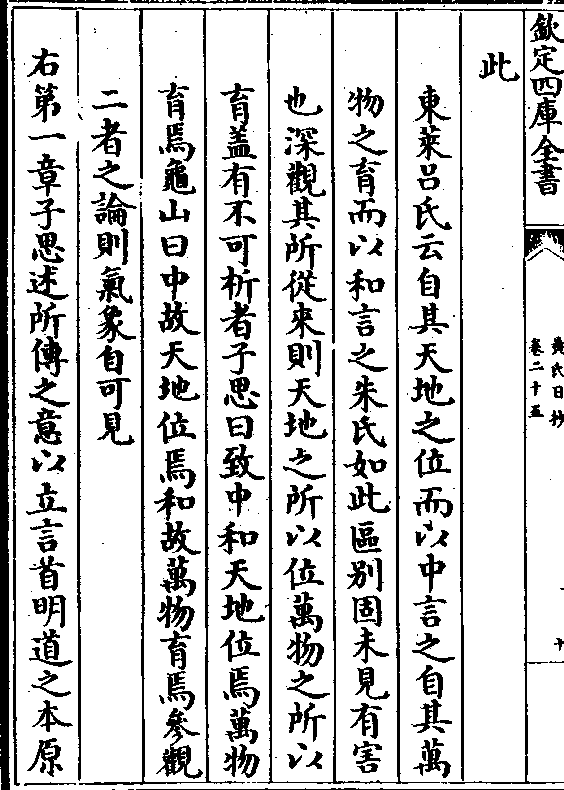 欽定四庫全書
黃氏日抄
卷二十五
十
此
東萊呂氏云自其天地之位而以中言之自其萬
物之育而以和言之朱氏如此區别固未見有害
也深觀其所從來則天地之所以位萬物之所以
育盖有不可析者子思曰致中和天地位焉萬物
育焉龜山曰中故天地位焉和故萬物育焉參觀
二者之論則氣象自可見
右第一章子思述所傳之意以立言首明道之本原